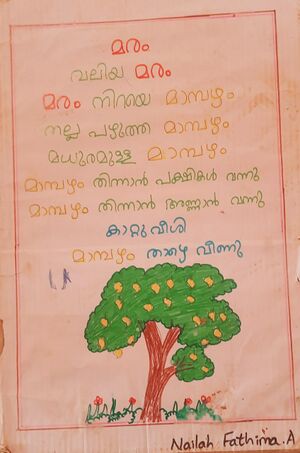 മരം
വലിയ മരം
മരം നിറയെ മാമ്പഴം
നല്ല പഴുത്ത മാമ്പഴം
മധുരമുള്ള മാമ്പഴം
മാമ്പഴം തിന്നാൻ പക്ഷികൾ വന്നു
മാമ്പഴം തിന്നാൻ അണ്ണാൻ വന്നു
കാറ്റുവീശി
മാമ്പഴം താഴെ വീണു
Nailah Fathima.A